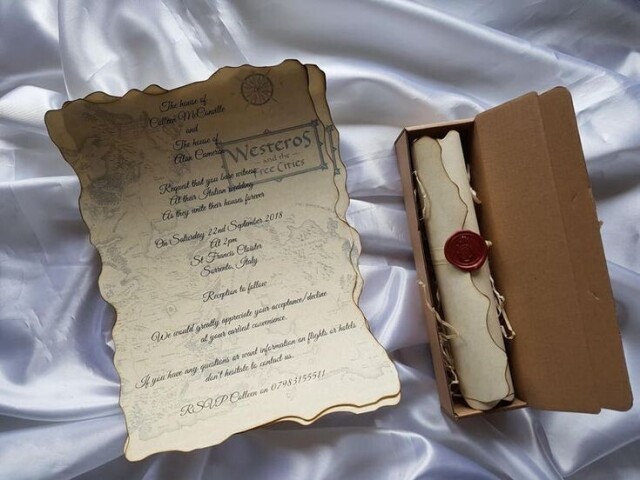 The house of
Colleen McConville
and
The house of
Alan Cameron
Westeros
and the
Free Cities
Request that you bare witness
At their Italian wedding
As they unite their houses forever
On Saturday 22nd September 2018
At 2pm
St Francis Cloister
Sorrento, Italy
Reception to follow
We would greatly appreciate your acceptance/decline
at your earliest convenience.
If you have any questions or want information on flights or hotels
don't hesitate to contact us.
RSVP Colleen on 07983155511